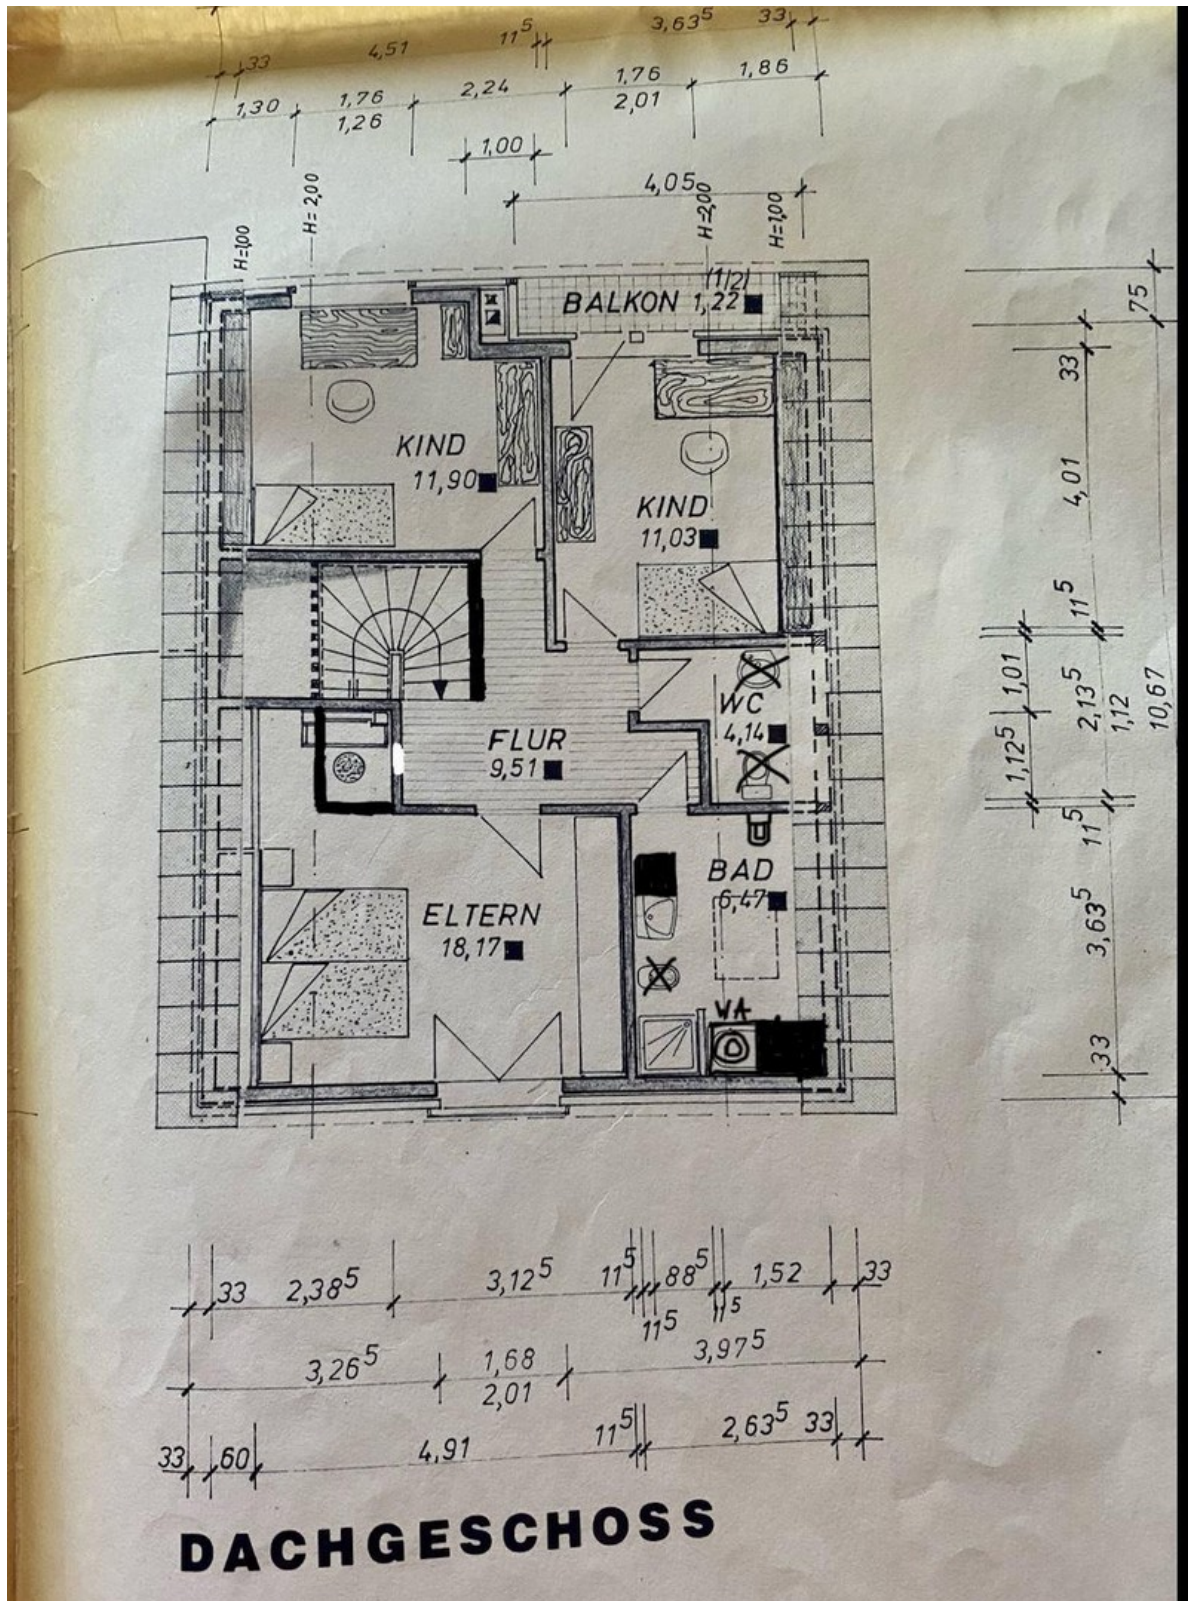 33 4,51 11⁵ 3,63⁵ 33
1,30 1,76 2,24 1,76 1,86
1,26 2,01
1,00
4,05
H=1,00
H=2,00
H=2,00
H=1,00
BALKON (1/2) 1,22
KIND
11,90
KIND
11,03
WC
4,14
FLUR
9,51
BAD
6,47
ELTERN
18,17
WA
75
33
4,01
11⁵
1,01
2,13⁵
1,12
10,67
1,12⁵
11⁵
3,63⁵
33
33 2,38⁵ 3,12⁵ 11⁵ 88⁵ 1,52 33
11⁵ 11⁵
3,26⁵ 1,68 3,97⁵
2,01
33 60 4,91 11⁵ 2,63⁵ 33
DACHGESCHOSS